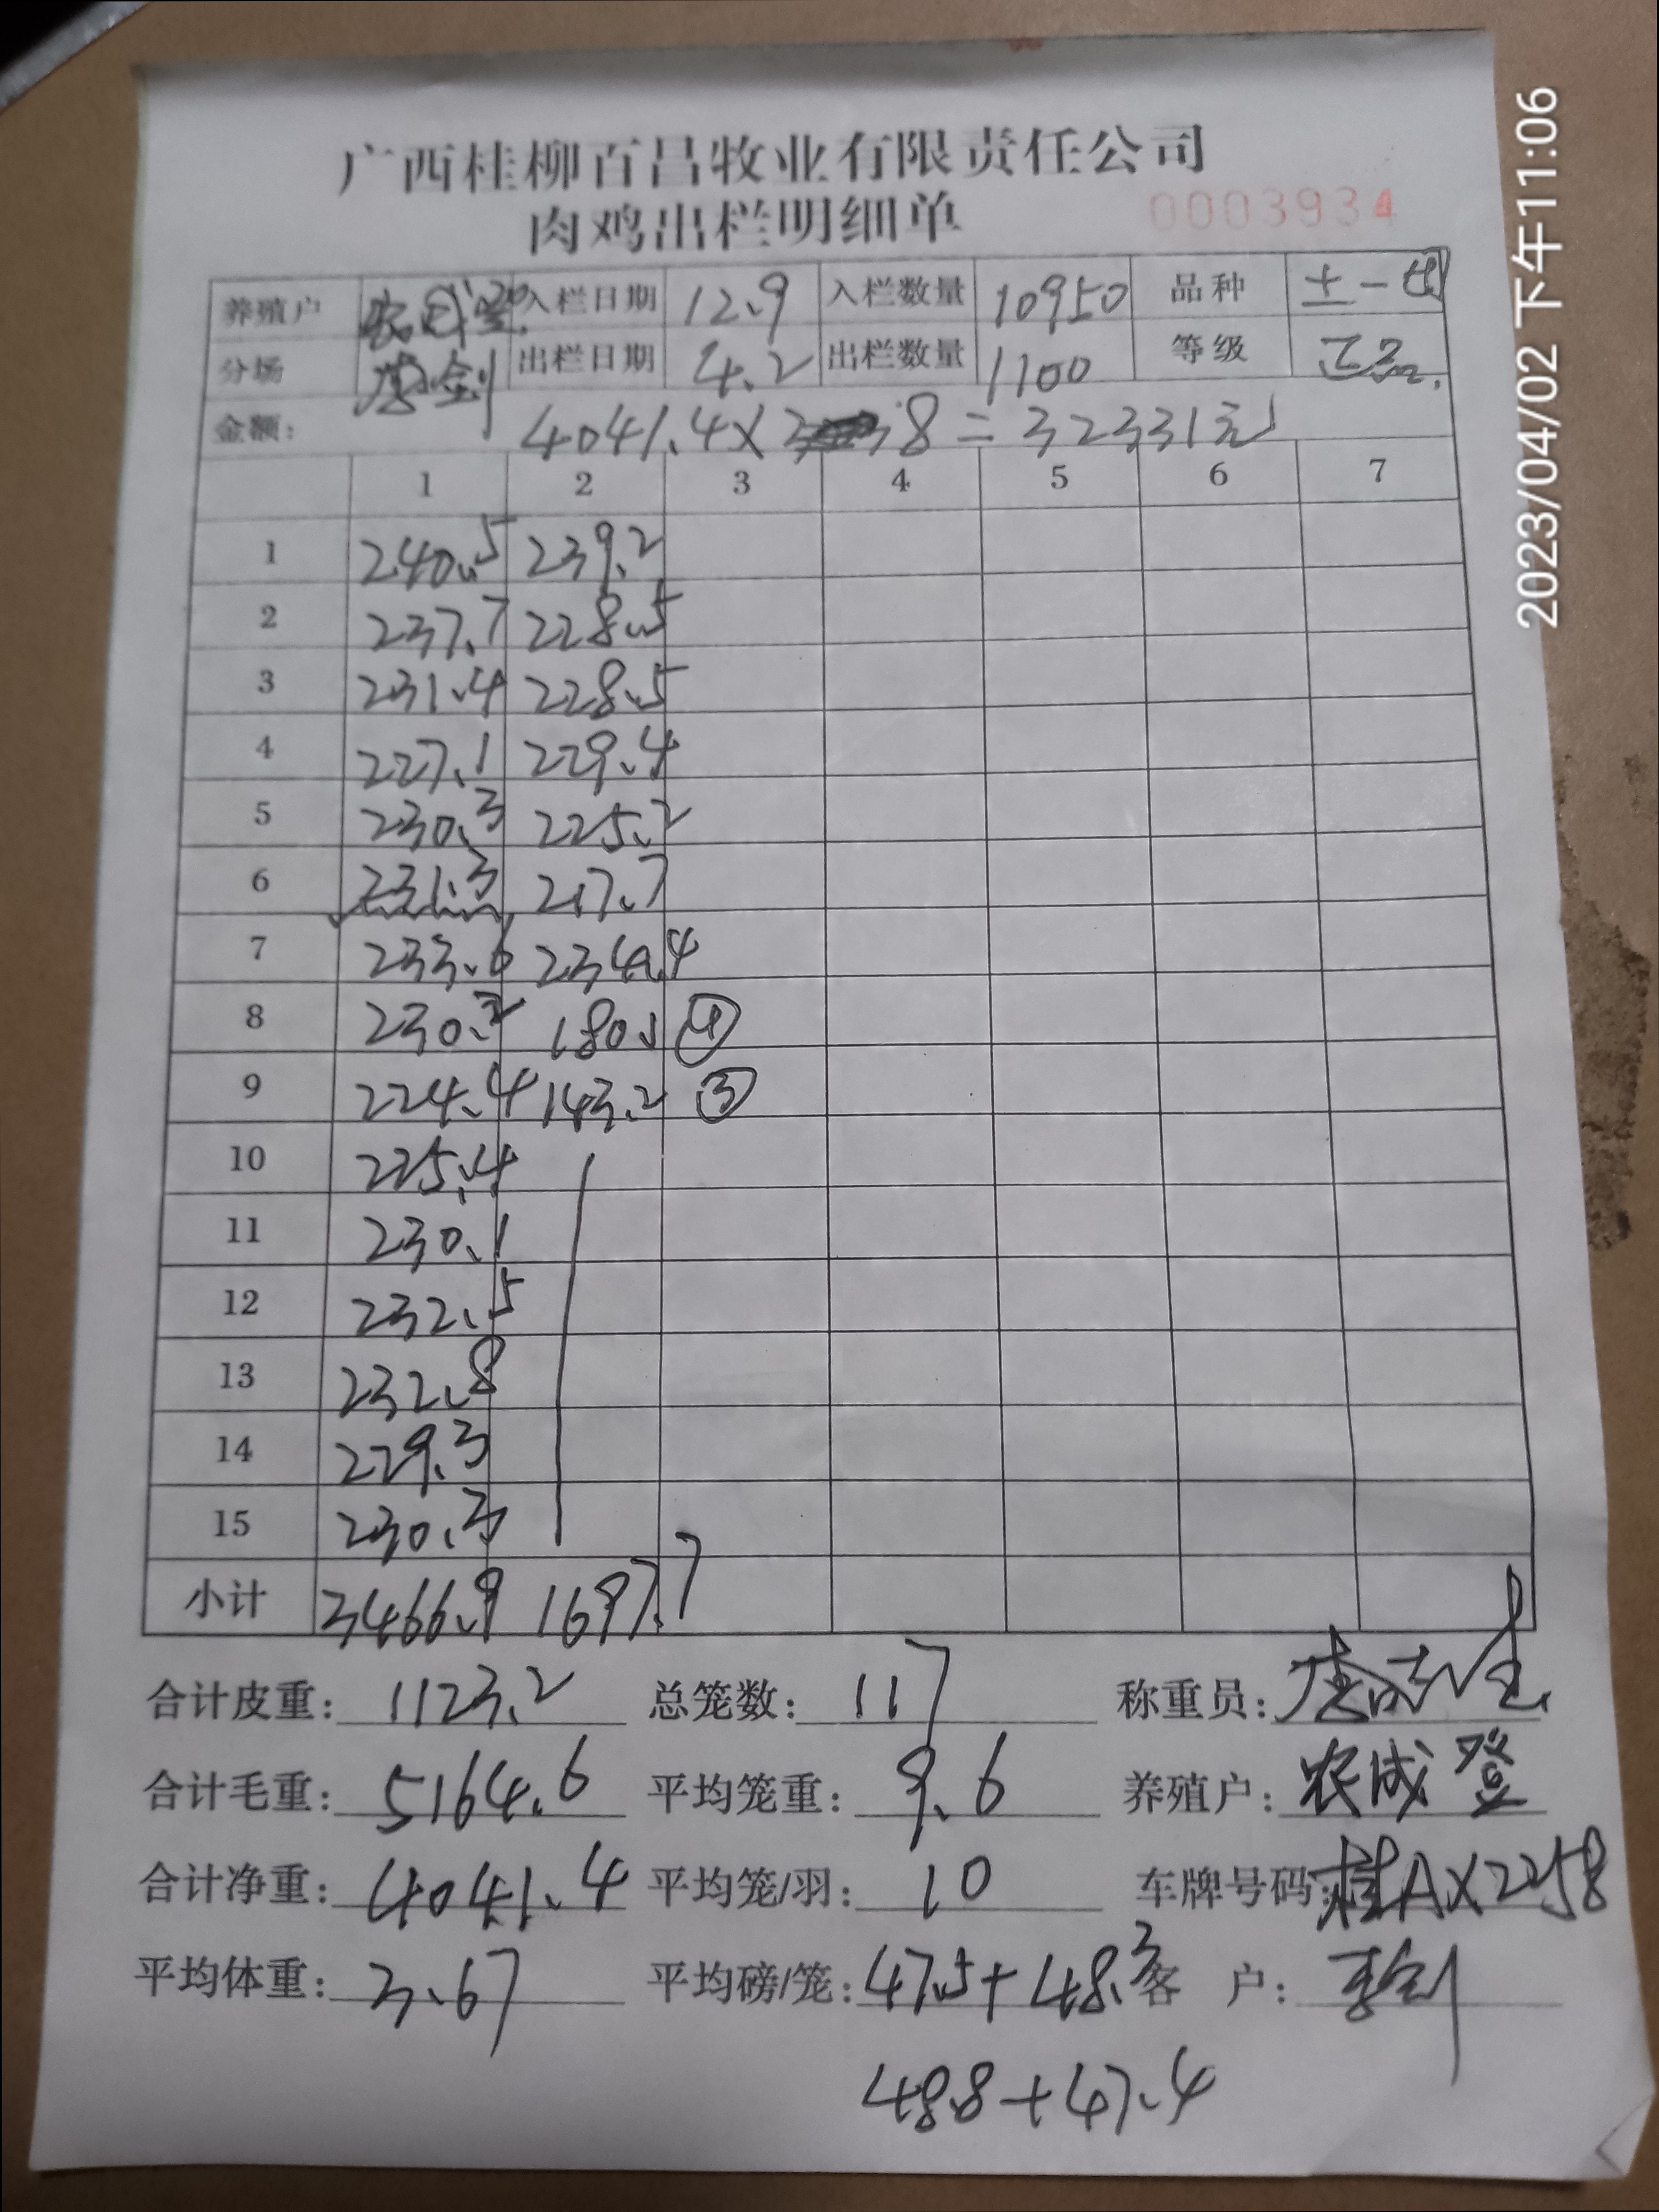 广西桂柳百昌牧业有限责任公司
肉鸡出栏明细单 0003934
养殖户 入栏日期 12.9 入栏数量 10950 品种
分场 出栏日期 4.2 出栏数量 1100 等级 正品.
金额: 4041.4× 8=32331元
1 2 3 4 5 6 7
1 240.5 239.2
2 237.7 228.5
3 231.4 228.5
4 227.1 229.4
5 230.3 225.2
6 231.3 217.7
7 233.6
8 230.2 ④
9 224.4 143.2 ③
10 225.4
11 230.1
12 232.5
13 232.8
14 229.3
15 230.3
小计 3466.9 1697.7
合计皮重: 1123.2 总笼数: 117 称重员:
合计毛重: 5164.6 平均笼重: 9.6 养殖户: 农成登
合计净重: 4041.4 平均笼/羽: 10 车牌号码: 桂AX2258
平均体重: 3.67 平均磅/笼: 47.5+48.3 客 户:
48.8+47.4
2023/04/02 下午11:06